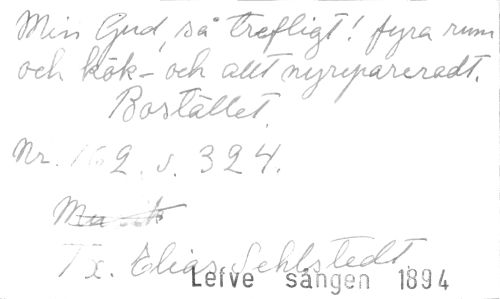 Min Gud, så trefligt! fyra rum
och kök - och allt nyrepareradt.
Bostället.
Nr. 162 s. 324.
Musik
Tx. Elias Sehlstedt.
Lefve sången 1894